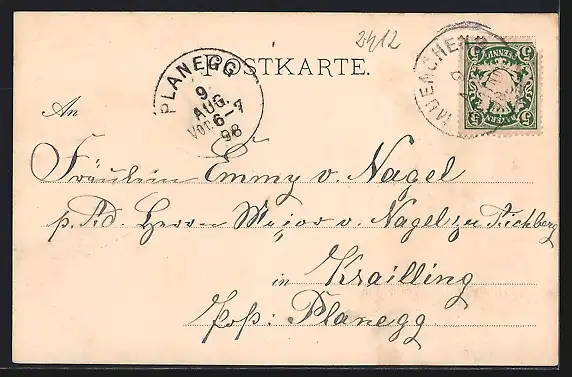 2412
POSTKARTE.
PLANEGG
9.
AUG.
Vor. 6-7
98
MUENCHEN
PFENNIG
BAYERN
5 5
5 5
An
Fräulein Emmy v. Nagel
p. Ad. Herrn Major v. Nagel zu Aichberg
in Krailling
Post: Planegg